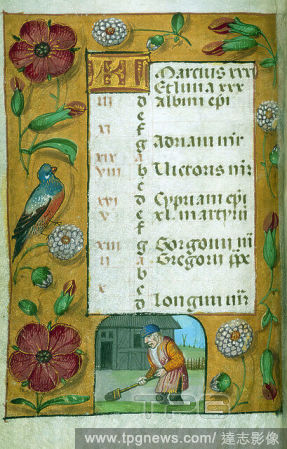 KL Marcius xxxi
Et luna xxx
iii d Albini epi
e
xi f
g Adriani mr
xix a
viii b Victoris mr
c
xvi d Cypriani epi
v e xl martyrum
f
xiii g Gorgonii mr
ii a Gregorii ppe
b
x c
d Longini mr
TPG
www.tpgnews.com/達志影像